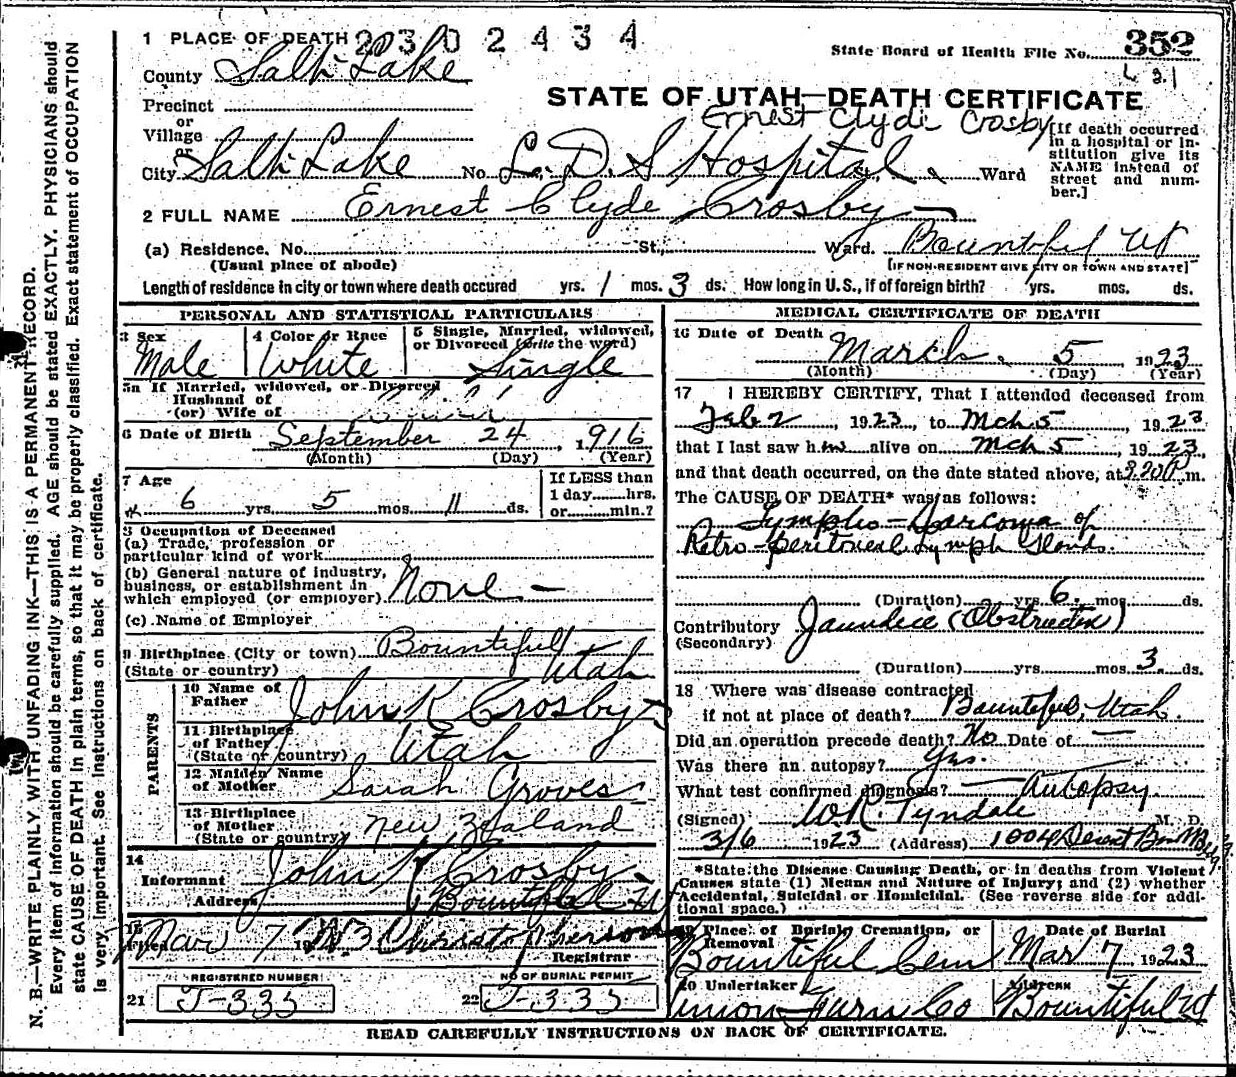 1 PLACE OF DEATH 2302434
State Board of Health File No. 352
County Salt Lake
STATE OF UTAH—DEATH CERTIFICATE
Precinct
or
Village
or
Ernest Clyde Crosby
City Salt Lake No. L. D. S Hospital Ward
[If death occurred in a hospital or institution give its NAME instead of street and number.]
2 FULL NAME Ernest Clyde Crosby
(a) Residence, No. St., Ward. Bountiful, Ut
(Usual place of abode) [IF NON-RESIDENT GIVE CITY OR TOWN AND STATE]
Length of residence in city or town where death occured yrs. 1 mos. 3 ds. How long in U. S., if of foreign birth? yrs. mos. ds.
PERSONAL AND STATISTICAL PARTICULARS
3 Sex Male
4 Color or Race White
5 Single, Married, widowed, or Divorced (write the word) Single
5a If Married, widowed, or Divorced
Husband of
(or) Wife of
6 Date of Birth September 24, 1916
(Month) (Day) (Year)
7 Age 6 yrs. 5 mos. 11 ds.
If LESS than
1 day hrs.
or min.?
8 Occupation of Deceased
(a) Trade, profession or
particular kind of work
(b) General nature of industry,
business, or establishment in
which employed (or employer) None —
(c) Name of Employer
9 Birthplace (City or town) Bountiful
(State or country) Utah
PARENTS
10 Name of Father John K Crosby
11 Birthplace of Father (State or country) Utah
12 Maiden Name of Mother Sarah Groves
13 Birthplace of Mother (State or country) New Zealand
14
Informant John K Crosby
Address Bountiful Ut
15
Filed Mar 7 19
Registrar
REGISTERED NUMBER
21 J-335
NO OF BURIAL PERMIT
22 J-335
MEDICAL CERTIFICATE OF DEATH
16 Date of Death March 5 1923
(Month) (Day) (Year)
17 I HEREBY CERTIFY, That I attended deceased from
Feb 2, 1923, to Mch 5, 1923
that I last saw him alive on Mch 5, 1923,
and that death occurred, on the date stated above, at 3.20 P m.
The CAUSE OF DEATH* was as follows:
Lympho-Sarcoma of
Retro-peritoneal Lymph Glands.
(Duration) yrs. 6. mos. ds.
Contributory (Secondary) Jaundice (Obstructive)
(Duration) yrs. mos. 3. ds.
18 Where was disease contracted
if not at place of death? Bountiful, Utah.
Did an operation precede death? No Date of —
Was there an autopsy? Yes.
What test confirmed diagnosis? — Autopsy.
(Signed) W.R. Tyndale M. D.
3/6 1923 (Address) 1004 Deseret Bank Bldg.
*State the Disease Causing Death, or in deaths from Violent
Causes state (1) Means and Nature of Injury; and (2) whether
Accidental, Suicidal or Homicidal. (See reverse side for addi-
tional space.)
19 Place of Burial, Cremation, or Removal Bountiful Cem
Date of Burial Mar 7 1923
20 Undertaker Union Furn Co
Address Bountiful Ut
READ CAREFULLY INSTRUCTIONS ON BACK OF CERTIFICATE.
N. B.—WRITE PLAINLY, WITH UNFADING INK—THIS IS A PERMANENT RECORD.
Every item of information should be carefully supplied. AGE should be stated EXACTLY. PHYSICIANS should
state CAUSE OF DEATH in plain terms, so that it may be properly classified. Exact statement of OCCUPATION
is very important. See Instructions on back of certificate.